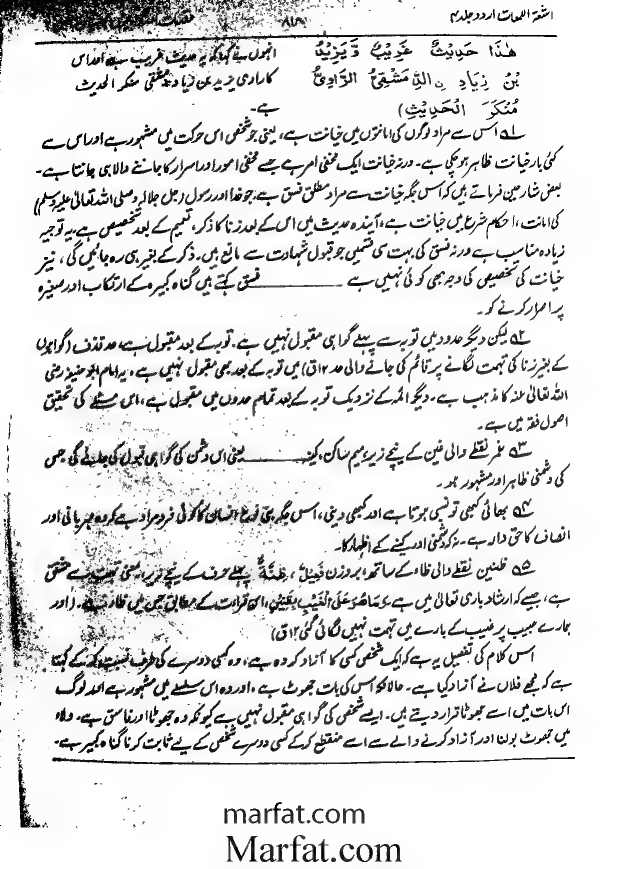 اشعة اللمعات اردو جلد ۴
۸۱۸
هٰذَا حَدِيْثٌ غَرِيْبٌ وَّيَزِيْدُ
بْنُ زِيَادِ نِ الدِّمَشْقِيُّ الرَّاوِيُّ
مُنْكَرَ الْحَدِيْثِ)
انہوں نے کہا کہ یہ حدیث غریب ہے اور اس
کا راوی یزید بن زیاد دمشقی منکر الحدیث
ہے۔
۱؎ اس سے مراد لوگوں کی امانتوں میں خیانت ہے، یعنی جو شخص اس حرکت میں مشہور ہے اور اس سے
کئی بار خیانت ظاہر ہو چکی ہے۔ ورنہ خیانت ایک مخفی امر ہے جسے مخفی امور اور اسرار کا جاننے والا ہی جانتا ہے۔
بعض شارحین فرماتے ہیں کہ اس جگہ خیانت سے مراد مطلق فسق ہے، جو خدا اور رسول (جل جلالہ وصلی اللہ تعالیٰ علیہ وسلم)
کی امانت، احکام شرع میں خیانت ہے، آیندہ حدیث میں اس کے بعد زنا کا ذکر، تعمیم کے بعد تخصیص ہے، یہ توجیہ
زیادہ مناسب ہے ورنہ فسق کی بہت سی قسمیں جو قبول شہادت سے مانع ہیں۔ ذکر کے بغیر ہی رہ جائیں گی، نیز
خیانت کی تخصیص کی وجہ بھی کوئی نہیں ہے ـــــــ فسق کہتے ہیں گناہ کبیرہ کے ارتکاب اور صغیرہ
پر اصرار کرنے کو۔
۲؎ لیکن دیگر حدود میں توبہ سے پہلے گواہی مقبول نہیں ہے۔ توبہ کے بعد مقبول ہے، حد قذف (گواہوں
کے بغیر زنا کی تہمت لگانے پر قائم کی جانے والی حد ۱۲ ق) میں توبہ کے بعد بھی مقبول نہیں ہے، یہ امام ابو حنیفہ رضی
اللہ تعالیٰ عنہ کا مذہب ہے۔ دیگر ائمہ کے نزدیک توبہ کے بعد تمام حدوں میں مقبول ہے، اس مسئلے کی تحقیق
اصول فقہ میں ہے۔
۳؎ غمر نقطے والی غین کے نیچے زیر، میم ساکن، کینہ ـــــــ یعنی اس دشمن کی گواہی قبول کی جائے گی جس
کی دشمنی ظاہر اور مشہور ہو۔
۴؎ بھائی کبھی تو نسبی ہوتا ہے اور کبھی دینی، اس جگہ بنی نوع انسان کا کوئی فرد مراد ہے کہ وہ مہربانی اور
انصاف کا حق دار ہے۔ نہ کہ دشمنی اور کینے کے اظہار کا۔
۵؎ ظنین نقطے والی ظاء کے ساتھ، بروزن فَعِیْلٌ، ظِنَّةٌ پہلے حرف کے نیچے زیر، بمعنی تہمت سے مشتق
ہے، جیسے کہ ارشاد باری تعالیٰ میں ہے وَمَا هُوَ عَلَى الْغَيْبِ بِظَنِيْنٍ، اس قرات کے مطابق جس میں ظاء ہے۔ (اور
ہمارے حبیب پر غیب کے بارے میں تہمت نہیں لگائی گئی ۱۲ ق)
اس کلام کی تفصیل یہ ہے کہ ایک شخص کسی کا آزاد کردہ ہے، وہ کسی دوسرے کی طرف نسبت کر کے کہتا
ہے کہ مجھے فلاں نے آزاد کیا ہے۔ حالانکہ اس کی بات جھوٹ ہے، اور وہ اس سلسلے میں مشہور ہے اور لوگ
اس بات میں اسے جھوٹا قرار دیتے ہیں۔ ایسے شخص کی گواہی مقبول نہیں ہے کیونکہ وہ جھوٹا اور فاسق ہے۔ ولاء
میں جھوٹ بولنا اور آزاد کرنے والے سے اسے منقطع کر کے کسی دوسرے شخص کے لیے ثابت کرنا گناہ کبیرہ ہے۔
marfat.com
Marfat.com